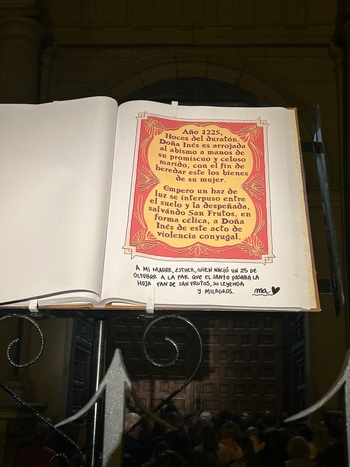 Año 1225,
Hoces del duratón.
Doña Inés es arrojada
al abismo a manos de
su promiscuo y celoso
marido, con el fin de
heredar este los bienes
de su mujer.
Empero un haz de
luz se interpuso entre
el suelo y la despeñada,
salvando San Frutos, en
forma célica, a Doña
Inés de este acto de
violencia conyugal.
A MI MADRE, ESTHER, QUIEN NACIÓ UN 25 DE
OCTUBRE A LA PAR QUE EL SANTO PASABA LA
HOJA. FAN DE SAN FRUTOS, SU LEYENDA
Y MILAGROS.